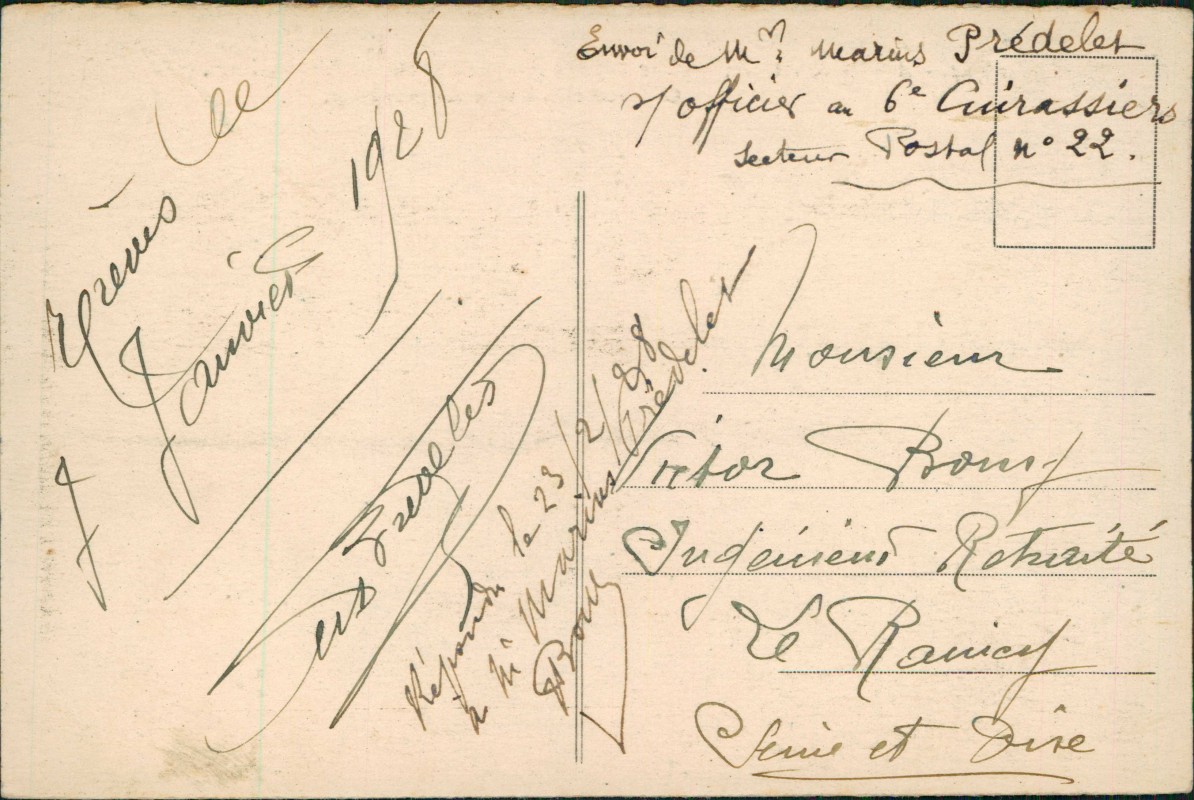 Envoi de Mr Marius Prédelet
s/officier au 6e Cuirassiers
secteur Postal n° 22.
Trèves le
7 Janvier 1928
Répondu le 23/2/28
à M Marius Prédelet
Bouy
Monsieur
Victor Bouy
Ingénieur Retraité
Le Raincy
Seine et Oise